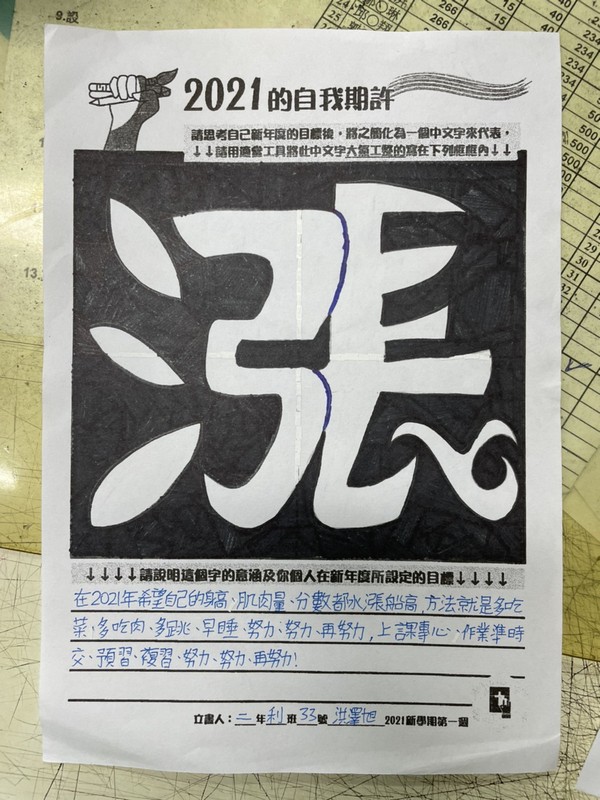 9.設
2021的自我期許
請思考自己新年度的目標後，將之簡化為一個中文字來代表，
↓↓請用適當工具將此中文字大氣工整的寫在下列框框內↓↓
漲
↓↓↓↓請說明這個字的意涵及你個人在新年度所設定的目標↓↓↓↓
在2021年希望自己的身高、肌肉量、分數都水漲船高,方法就是多吃
菜、多吃肉、多跳、早睡、努力、努力、再努力,上課專心、作業準時
交、預習、複習、努力、努力、再努力!
立書人：二年利班33號 洪睪旭 2021新學期第一週
13.